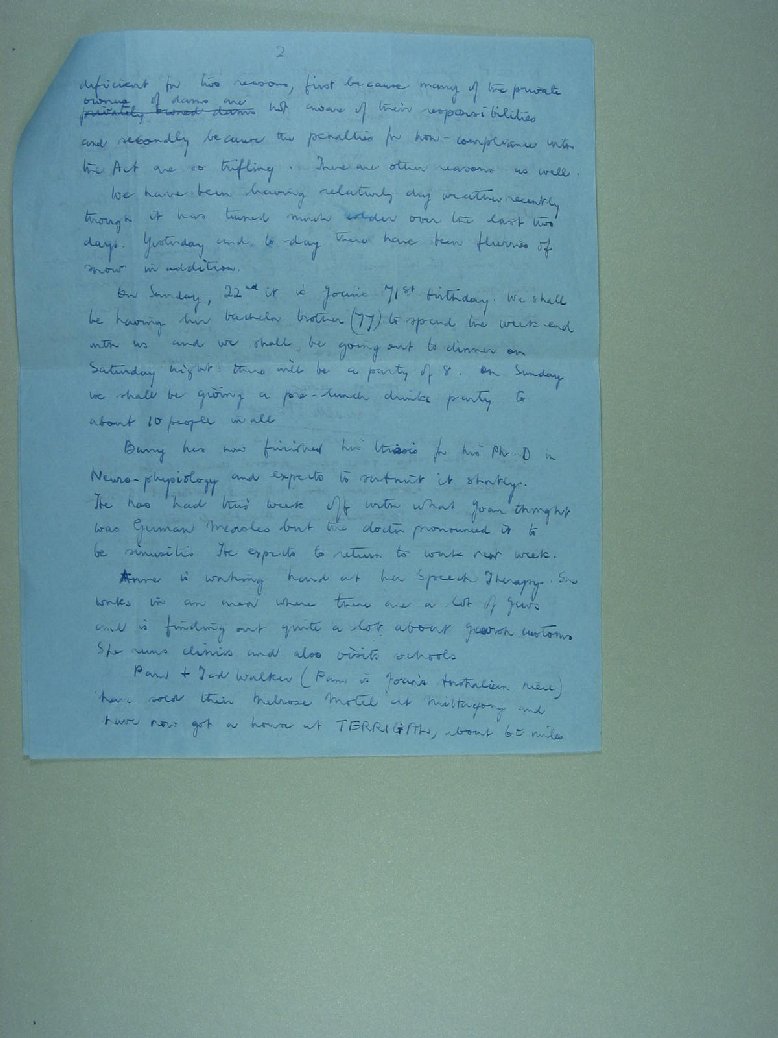 2
deficient for two reasons, first because many of the private
owners of dams are
privately owned dams not aware of their responsibilities
and secondly because the penalties for non-compliance with
the Act are so trifling. There are other reasons as well.
We have been having relatively dry weather recently
though it has turned much colder over the last two
days. Yesterday and to-day there have been flurries of
snow in addition.
On Sunday, 22nd it is Joan's 71st birthday. We shall
be having her bachelor brother (77) to spend the week-end
with us and we shall be going out to dinner on
Saturday night: there will be a party of 8. On Sunday
we shall be giving a pre-lunch drinks party to
about 10 people in all
Barry has now finished his thesis for his Ph.D in
Neuro-physiology and expects to submit it shortly.
He has had this week off with what Joan thought
was German Measles but the doctor pronounced it to
be sinusitis He expects to return to work next week.
Anne is working hard at her Speech Therapy. She
works in an area where there are a lot of Jews
and is finding out quite a lot about Jewish customs
She runs clinics and also visits schools
Pam + Ted Walker (Pam is Joan's Australian niece)
have sold their Melrose Motel at Mittagong and
have now got a house at TERRIGAL, about 65 miles